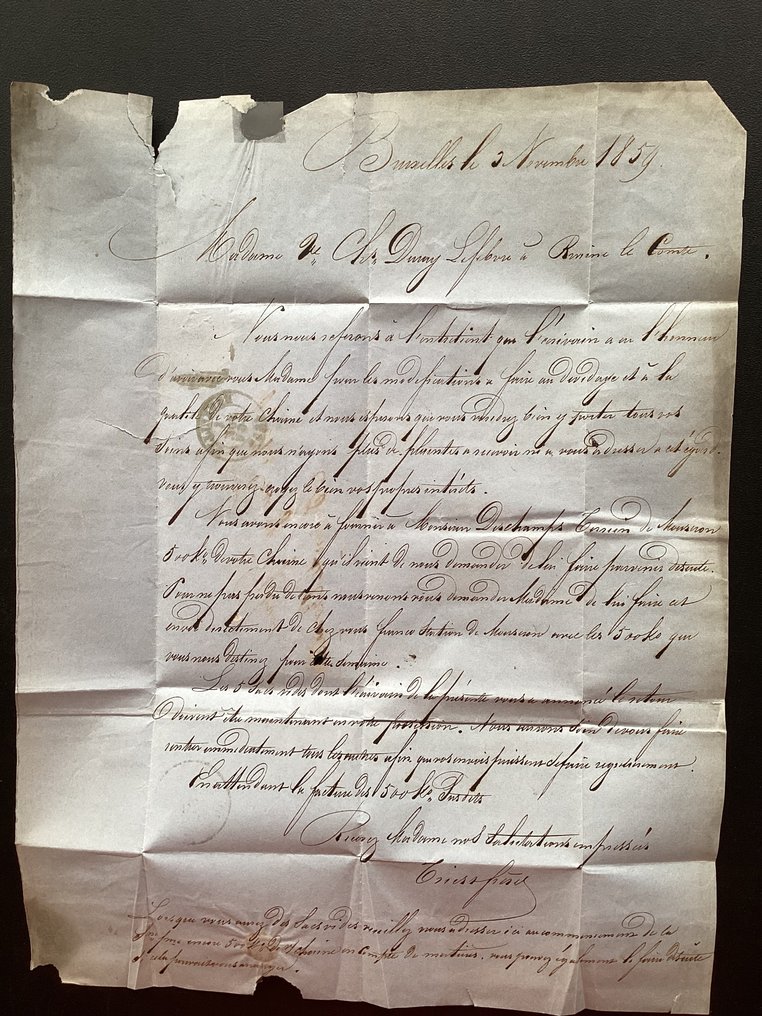 Bruxelles le 3 Novembre 1859.
Madame Vve Ch. Duray Lefebvre à le Comte.
Nous nous referons à l'entretient que l'écrivain a eu l'honneur
d'avoir avec vous Madame pour les modifications a faire au devidage et à la
qualité de votre Chaine et nous esperons que vous voudrez bien y porter tous vos
Soins afin que nous n'ayons plus de plaintes a recevoir ni a vous adresser a cet égard.
vous y trouverez croyez le bien vos propres intérêts.
Nous avons encore à fournir à Monsieur Deschamps de Mouscron
500 ko. de votre Chaine qu'il vient de nous demander de lui faire parvenir de suite.
Pour ne pas perdre de tems nous venons vous demander Madame de lui faire cet
envoi directement de chez vous franco Station de Mouscron avec les 500 ko que
vous nous destinez pour cette Semaine.
Les 5 Sacs vides dont l'écrivain de la présente vous a annoncé le retour
doivent être maintenant en votre possession. Nous aurons soin de vous faire
rentrer immédiatement tous les autres afin que vos envois puissent se faire regulièrement.
En attendant la facture des 500 ko.
Recevez Madame nos Salutations empressées
frères
Lorsque vous aurez des Sacs vides veuillez nous adresser ici au commencement de la
Sme pne encore 500 ko. de Chaine en compte de vous pouvez également le faire de suite
si cela pouvait vous arranger.